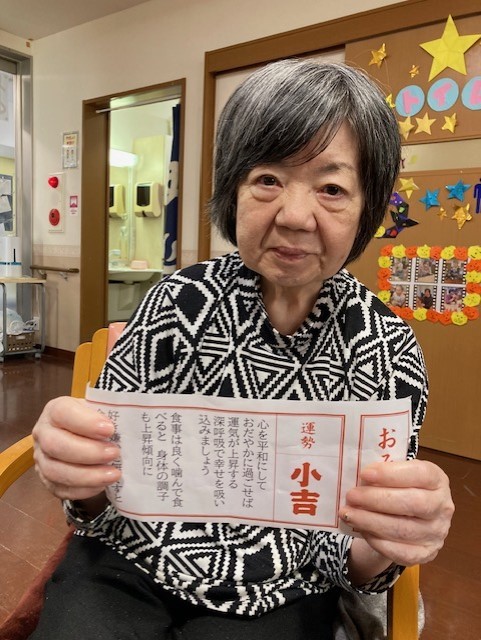 トイム
おみ
運勢
小吉
心を平和にして
おだやかに過ごせば
運気が上昇する
深呼吸で幸せを吸い
込みましょう
食事は良く噛んで食
べると 身体の調子
も上昇傾向に